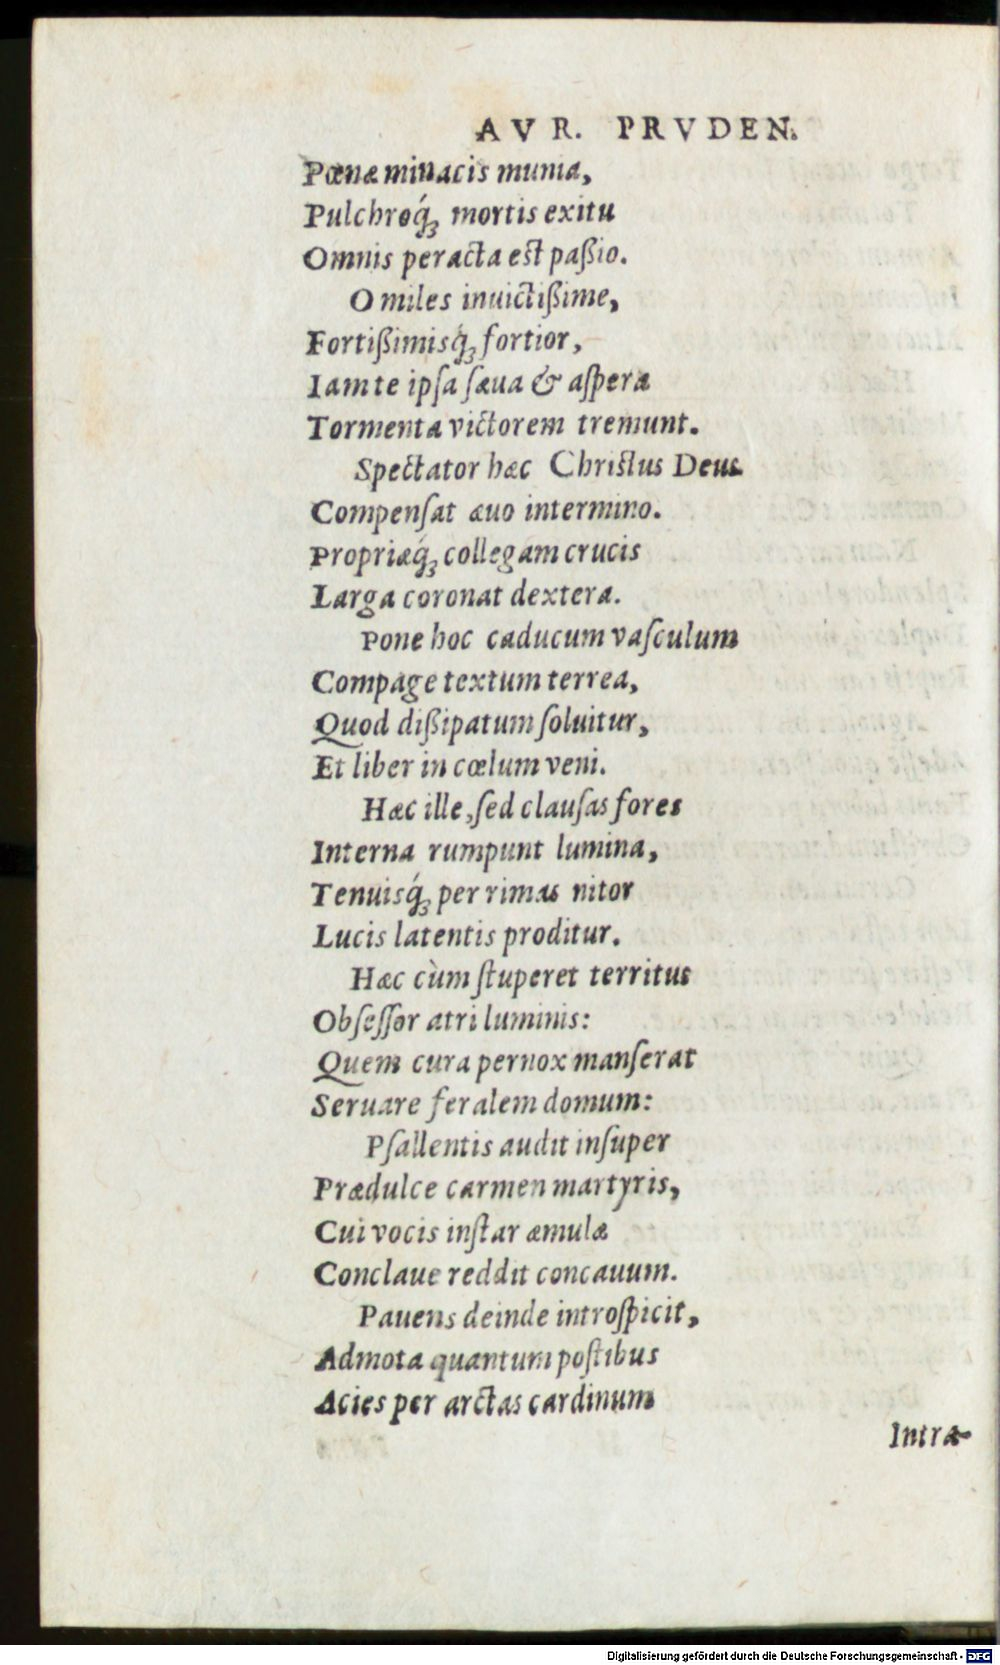 AVR. PRVDEN.
Pœnæ minacis munia,
Pulchroq́ꝫ mortis exitu
Omnis peracta est paßio.
O miles inuictißime,
Fortißimisq́ꝫ fortior,
Iam te ipſa ſæua & aſpera
Tormenta victorem tremunt.
Spectator hæc Christus Deus
Compenſat æuo intermino.
Propriæq́ꝫ collegam crucis
Larga coronat dextera.
Pone hoc caducum vaſculum
Compage textum terrea,
Quod dißipatum ſoluitur,
Et liber in cœlum veni.
Hæc ille, ſed clauſas fores
Interna rumpunt lumina,
Tenuisq́ꝫ per rimas nitor
Lucis latentis proditur.
Hæc cùm ſtuperet territus
Obſeſſor atri luminis:
Quem cura pernox manſerat
Seruare feralem domum:
Pſallentis audit inſuper
Prædulce carmen martyris,
Cui vocis inſtar æmulæ
Conclaue reddit concauum.
Pauens deinde introſpicit,
Admota quantum poſtibus
Acies per arctas cardinum
Intra-
Digitalisierung gefördert durch die Deutsche Forschungsgemeinschaft - DFG